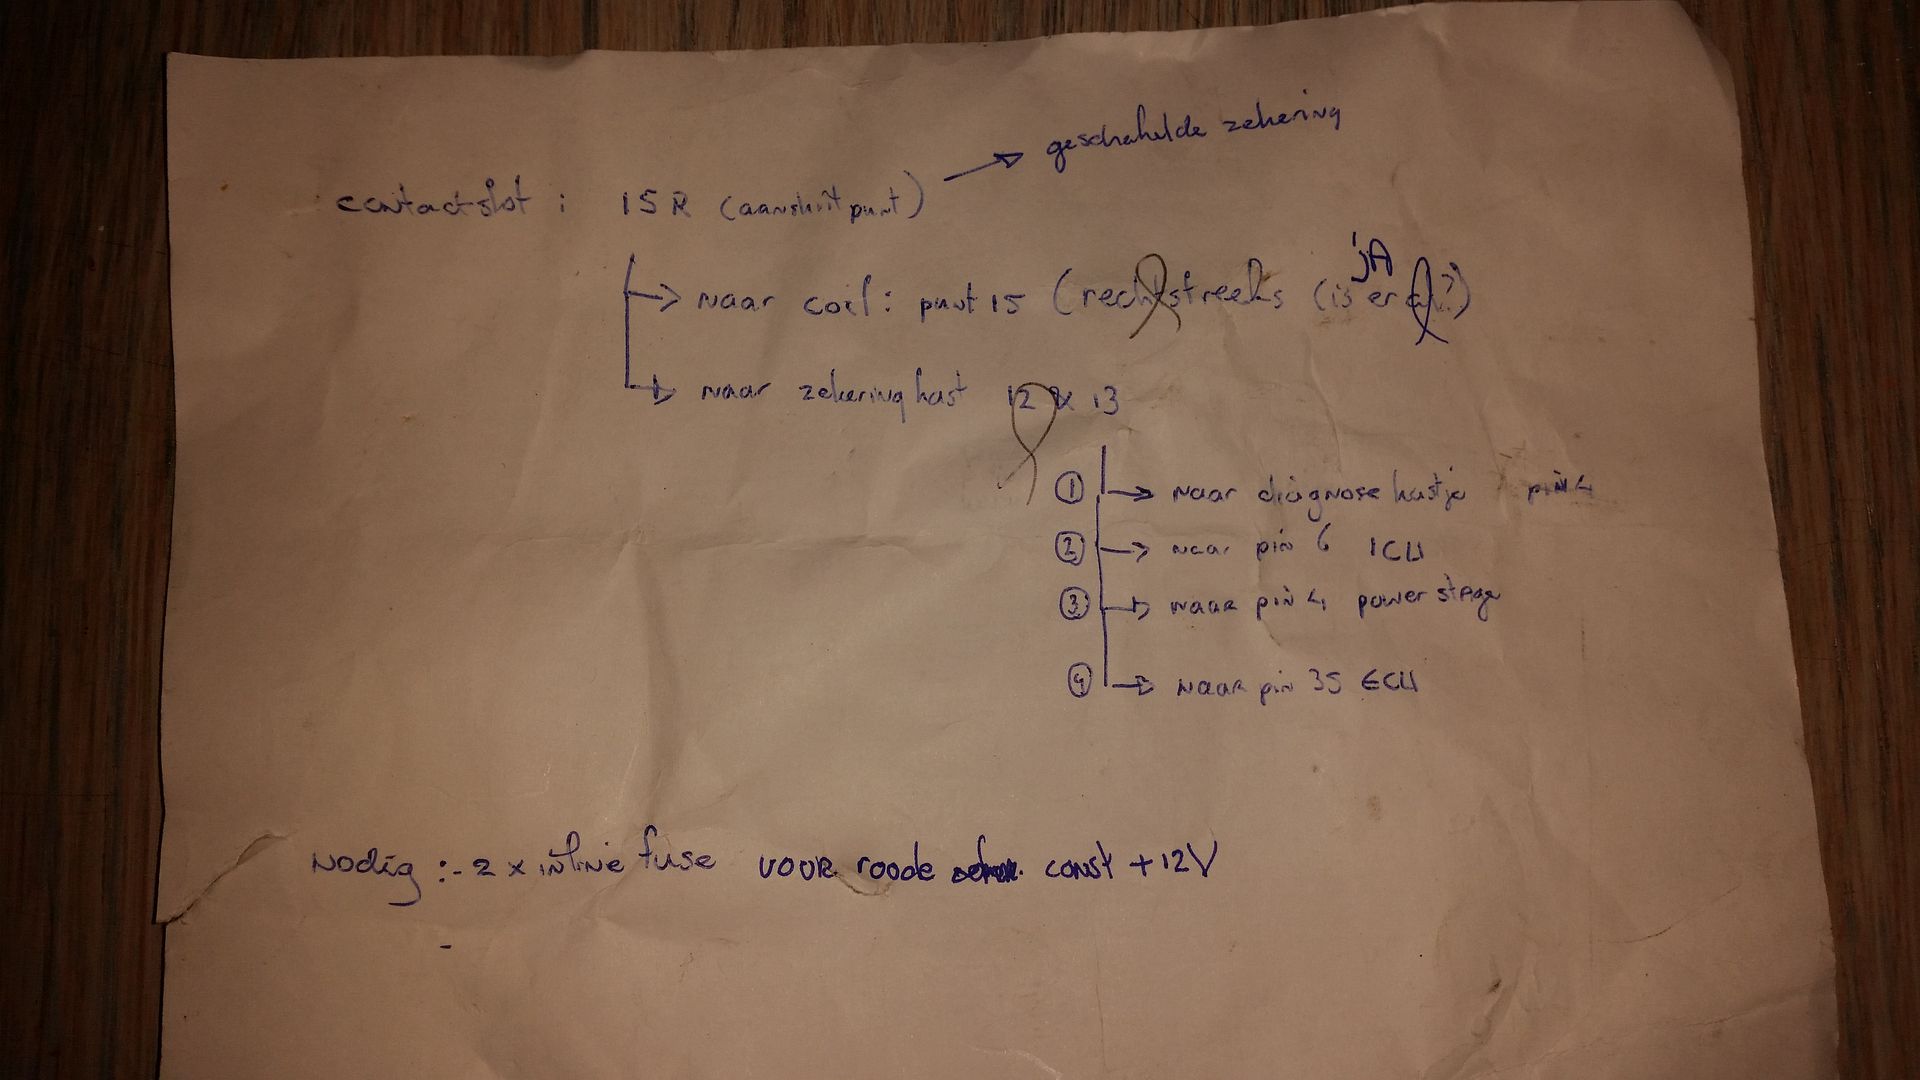 geschakelde zekering
contactslot : 15R (aansluitpunt)
jA
naar coil: punt 15 (rechtstreeks (is er al?)
naar zekeringkast 12 & 13
1 naar diagnose kastje pin 4
2 naar pin 6 ICU
3 naar pin 4 powerstage
4 naar pin 35 ECU
Nodig :- 2 x inline fuse voor roode const +12V
-